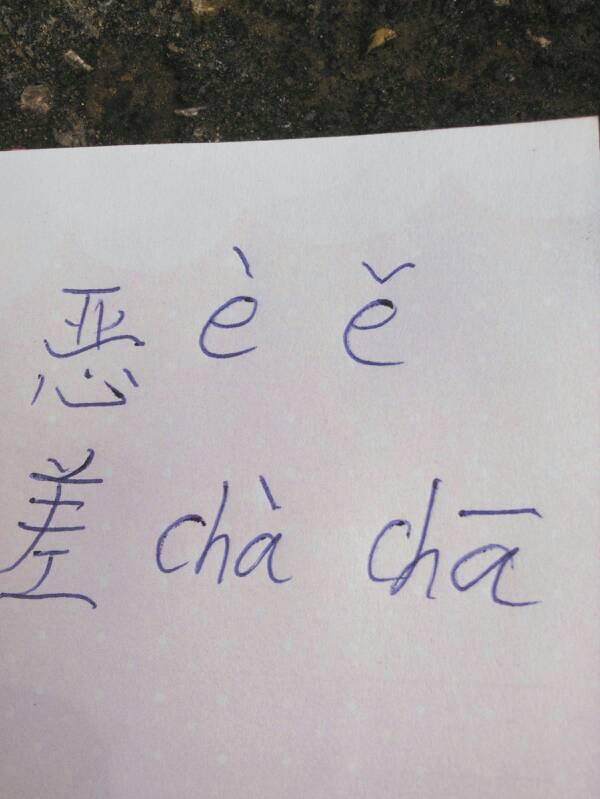 恶 è ě
差 chà chā